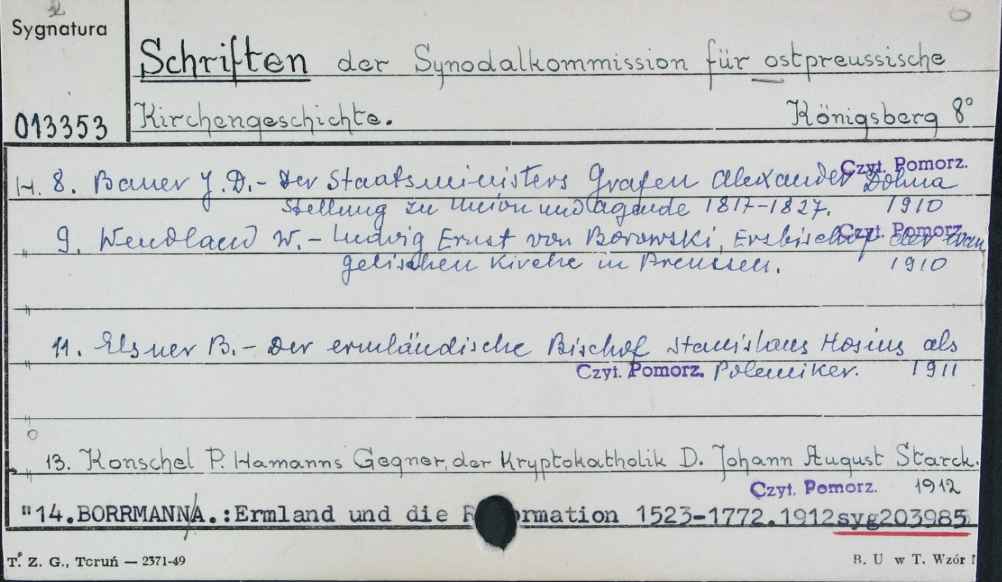 Sygnatura
013353
Schriften der Synodalkommission für ostpreussische
Kirchengeschichte. Königsberg 8°
H. 8. Bauer J. D. - Der Staatsministers Grafen Alexander Dohna
Czyt. Pomorz.
Stellung zu Union und Agende 1817-1827. 1910
" 9. Wendland W. - Ludwig Ernst von Borowski, Erzbischof der evan
Czyt. Pomorz.
gelischen Kirche in Preussen. 1910
"
" 11. Elsner B. - Der ermländische Bischof Stanislaus Hosius als
Czyt. Pomorz. Polemiker. 1911
"
13. Konschel P. Hamanns Gegner, der Kryptokatholik D. Johann August Starck.
Czyt. Pomorz. 1912
"14. BORRMANN/A.:Ermland und die R rmation 1523-1772.1912 syg203985
T. Z. G., Toruń — 2371-49 B. U w T. Wzór